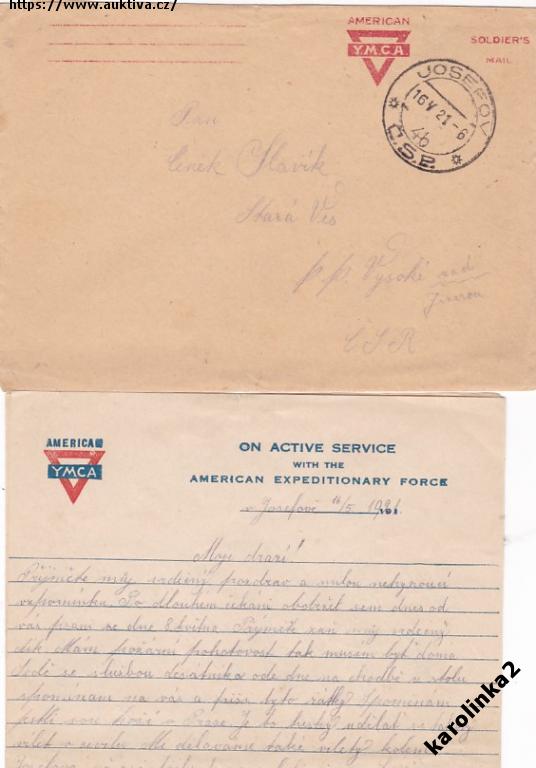 https://www.auktiva.cz/
AMERICAN
Y.M.C.A
SOLDIER'S
MAIL
JOSEFOV
16 V 21 - 6
4b
Č.S.P.
Pan
Čeněk Slavík
Stará Ves
p. p. Vysoké nad
Jizerou
ČSR
AMERICAN
YMCA
ON ACTIVE SERVICE
WITH THE
AMERICAN EXPEDITIONARY FORCE
v Josefově 16/5 1921 191
Moje drazí!
Přijměte můj srdečný pozdrav a milou nehynoucí
vzpomínku. Po dlouhém čekání obdržel sem dnes od
vás psaní ze dne 8 května Přijměte zaň můj srdečný
dík Mám požární pohotovost tak musem být doma
se službou desátníka ode dne na chodbě u stolu
spomínam na vás a píši tyto řádky Spomenám
v Praze Je to hezký udělat si
výlet
Josefova
karolinka2